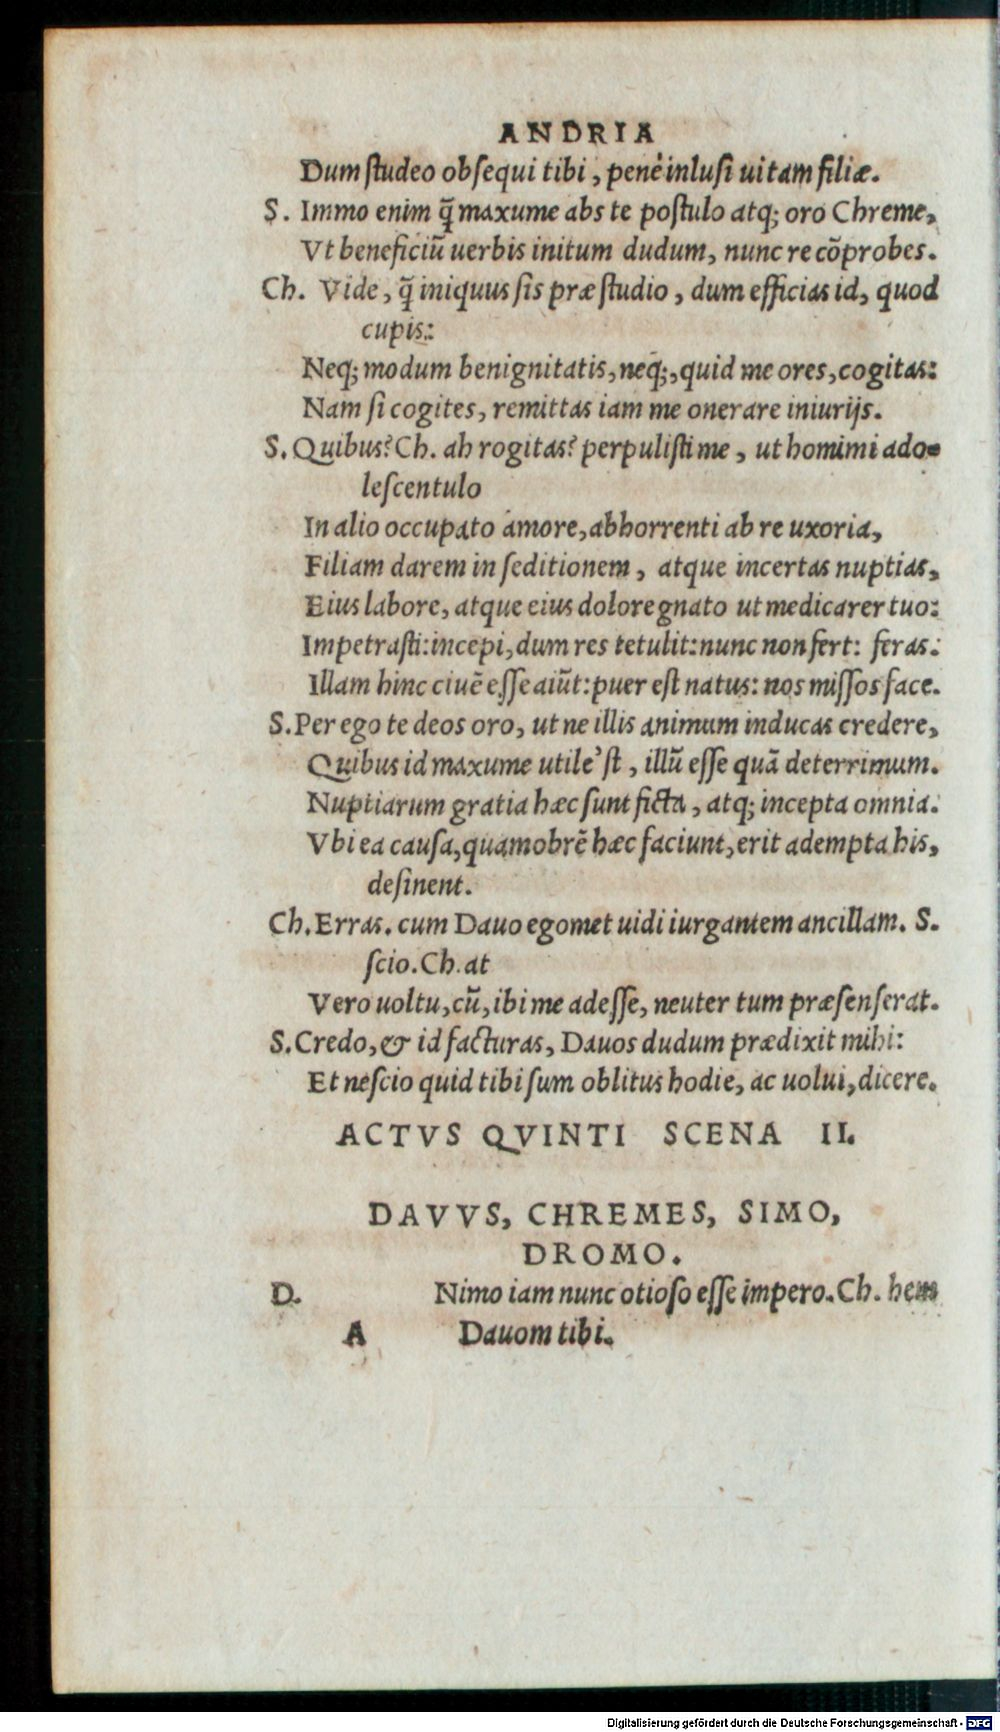 ANDRIA
Dum ſtudeo obſequi tibi, penè inluſi uitam filiæ.
S. Immo enim q̃ maxume abs te poſtulo atq; oro Chreme,
Vt beneficiũ uerbis initum dudum, nunc re cõprobes.
Ch. Vide, q̃ iniquus ſis præ ſtudio, dum efficias id, quod
cupis:
Neq; modum benignitatis, neq;, quid me ores, cogitas:
Nam ſi cogites, remittas iam me onerare iniurijs.
S. Quibus? Ch. ah rogitas? perpuliſti me, ut homimi ado-
leſcentulo
In alio occupato amore, abhorrenti ab re uxoria,
Filiam darem in ſeditionem, atque incertas nuptias,
Eius labore, atque eius dolore gnato ut medicarer tuo:
Impetraſti: incepi, dum res tetulit: nunc non fert: feras:
Illam hinc ciuẽ eſſe aiũt: puer eſt natus: nos miſſos face.
S. Per ego te deos oro, ut ne illis animum inducas credere,
Quibus id maxume utile'ſt, illũ eſſe quã deterrimum.
Nuptiarum gratia hæc ſunt ficta, atq; incepta omnia.
Vbi ea cauſa, quamobrẽ hæc faciunt, erit adempta his,
deſinent.
Ch. Erras. cum Dauo egomet uidi iurgantem ancillam. S.
ſcio. Ch. at
Vero uoltu, cũ, ibi me adeſſe, neuter tum præſenſerat.
S. Credo, & id facturas, Dauos dudum prædixit mihi:
Et neſcio quid tibi ſum oblitus hodie, ac uolui, dicere.
ACTVS QVINTI SCENA II.
DAVVS, CHREMES, SIMO,
DROMO.
D. Nimo iam nunc otioſo eſſe impero. Ch. hem
A Dauom tibi.
Digitalisierung gefördert durch die Deutsche Forschungsgemeinschaft - DFG